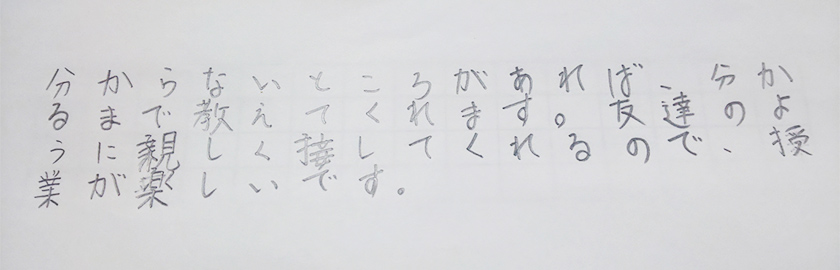 分からないところがあれば、分か
るまで教えてくれます。友達のよ
うに親しく接してくれるので、授
業が楽しいです。